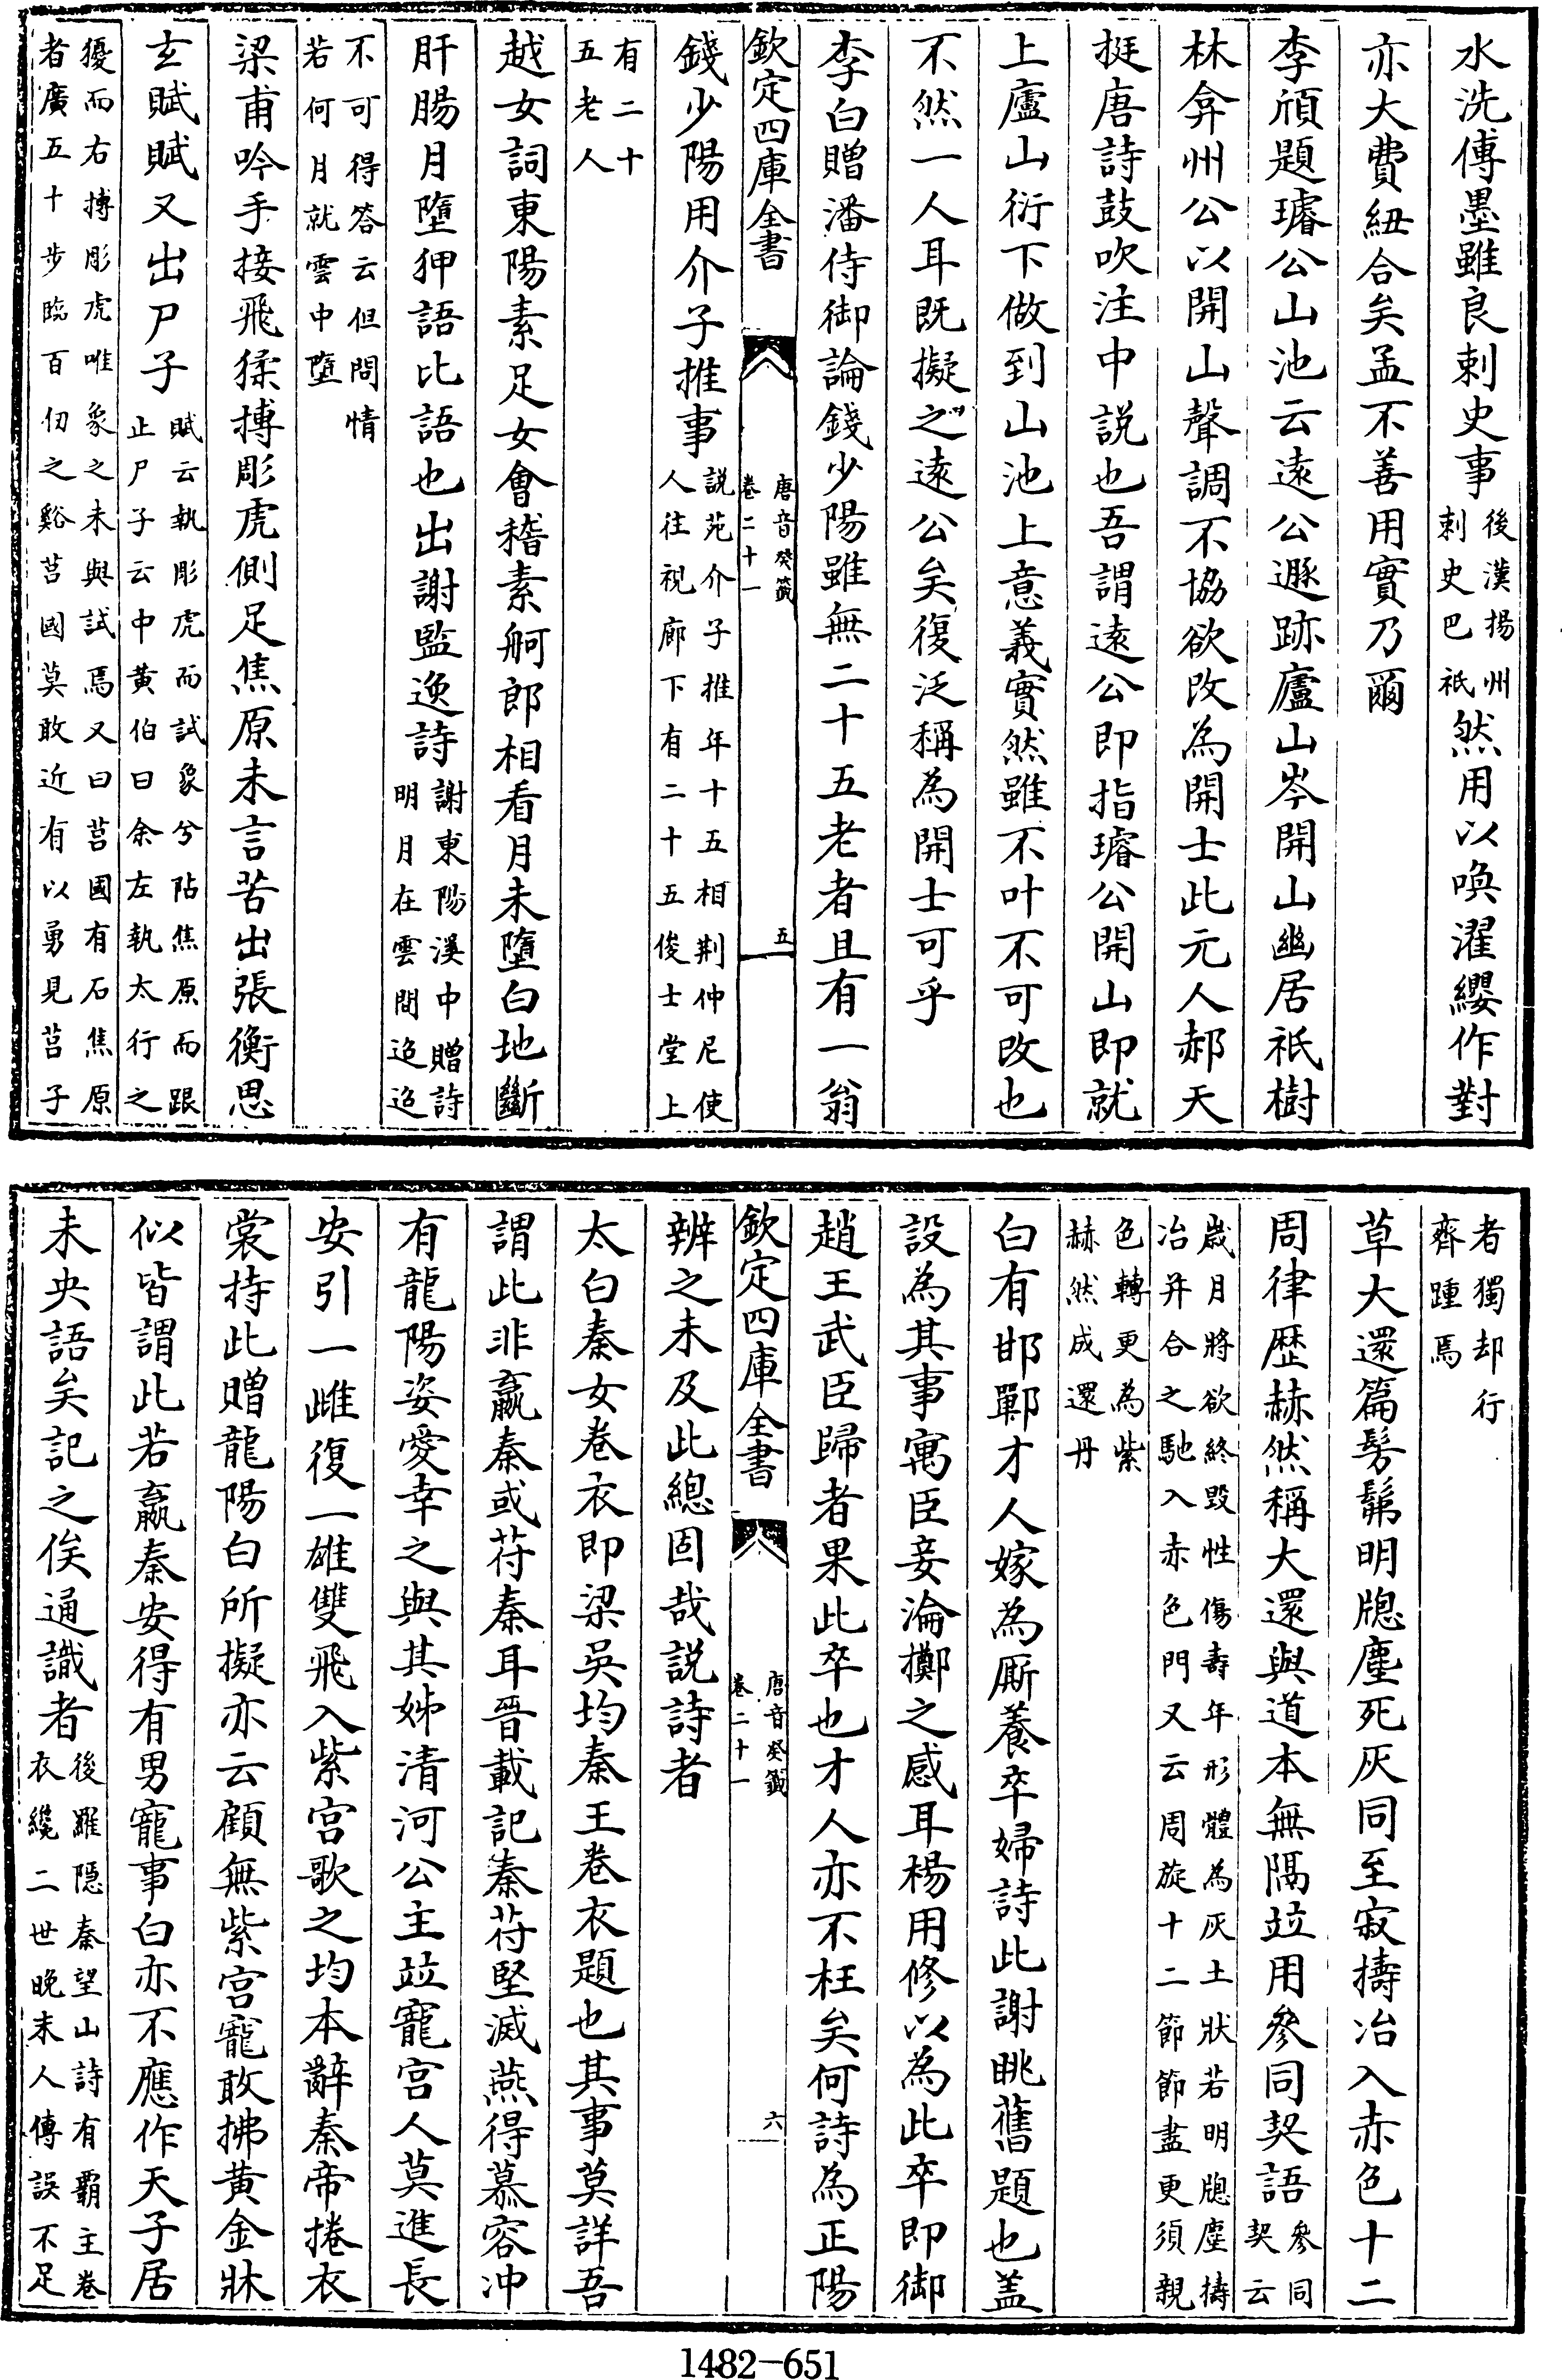 水洗傅墨雖良刺史事後漢揚州刺史巴祇然用以喚濯纓作對
亦大費紐合矣孟不善用實乃爾
李頎題璿公山池云遠公遯跡廬山岑開山幽居祇樹
林弇州公以開山聲調不協欲改為開士此元人郝天
挺唐詩鼓吹注中説也吾謂遠公即指璿公開山即就
上廬山衍下做到山池上意義實然雖不叶不可改也
不然一人耳既擬之遠公矣復泛稱為開士可乎
李白贈潘侍御論錢少陽雖無二十五老者且有一翁
欽定四庫全書 唐音癸籤卷二十一 五
錢少陽用介子推事説苑介子推年十五相荆仲尼使人往視廊下有二十五俊士堂上
有二十五老人
越女詞東陽素足女會稽素舸郎相看月未墮白地斷
肝腸月墮狎語比語也出謝監逸詩謝東陽溪中贈詩明月在雲間迢迢
不可得答云但問情若何月就雲中墮
梁甫吟手接飛猱搏彫虎側足焦原未言苦出張衡思
玄賦賦又出尸子賦云執彫虎而試象兮阽焦原而跟止尸子云中黄伯曰余左執太行之
獶而右搏彫虎唯象之未與試焉又曰莒國有石焦原者廣五十步臨百仞之谿莒國莫敢近有以勇見莒子
者獨却行齊踵焉
草大還篇髣髴明牕塵死灰同至寂擣冶入赤色十二
周律歴赫然稱大還與道本無隔竝用參同契語參同契云
歲月將欲終毀性傷壽年形體為灰土狀若明牕塵擣冶并合之馳入赤色門又云周旋十二節節盡更須親
色轉更為紫赫然成還丹
白有邯鄲才人嫁為厮養卒婦詩此謝眺舊題也盖
設為其事寓臣妾淪擲之感耳楊用修以為此卒即御
趙王武臣歸者果此卒也才人亦不枉矣何詩為正陽
欽定四庫全書 唐音癸籤卷二十一 六
辨之未及此總固哉説詩者
太白秦女巻衣即梁吳均秦王巻衣題也其事莫詳吾
謂此非嬴秦或苻秦耳晉載記秦苻堅滅燕得慕容冲
有龍陽姿愛幸之與其姊清河公主竝寵宫人莫進長
安引一雌復一雄雙飛入紫宫歌之均本辭秦帝捲衣
裳持此贈龍陽白所擬亦云顧無紫宫寵敢拂黄金牀
似皆謂此若嬴秦安得有男寵事白亦不應作天子居
未央語矣記之俟通識者後羅隱秦望山詩有霸主巻衣纔二世晚末人傳誤不足
1482-651